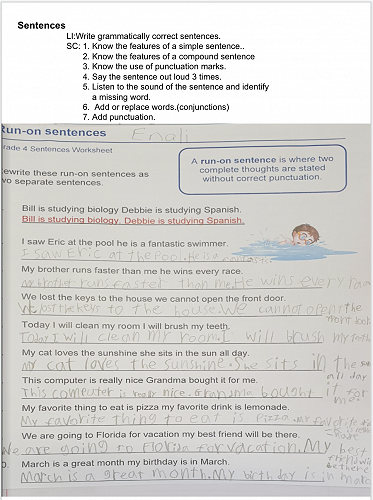 Sentences
LI:Write grammatically correct sentences.
SC: 1. Know the features of a simple sentence..
2. Know the features of a compound sentence
3. Know the use of punctuation marks.
4. Say the sentence out loud 3 times.
5. Listen to the sound of the sentence and identify
a missing word.
6. Add or replace words.(conjunctions)
7. Add punctuation.
Run-on sentences Enali
rade 4 Sentences Worksheet
A run-on sentence is where two
complete thoughts are stated
without correct punctuation.
ewrite these run-on sentences as
wo separate sentences.
Bill is studying biology Debbie is studying Spanish.
Bill is studying biology. Debbie is studying Spanish.
I saw Eric at the pool he is a fantastic swimmer.
I saw Eric at the pool. He is a fantastic
My brother runs faster than me he wins every race.
my brother runs faster than me. He wins every race
We lost the keys to the house we cannot open the front door.
We lost the keys to the house. We cannot open the
front door
Today I will clean my room I will brush my teeth.
Today I will clean my room. I will brush my teeth
My cat loves the sunshine she sits in the sun all day.
my cat loves the sunshine. She sits in the sun
all day
This computer is really nice Grandma bought it for me.
This computer is really nice. Grandma bought it for
me.
My favorite thing to eat is pizza my favorite drink is lemonade.
My favorite thing to eat is pizza. my favorite
We are going to Florida for vacation my best friend will be there.
We are going to Florida for vacation. My best
March is a great month my birthday is in March.
March is a great month. My birthday is in